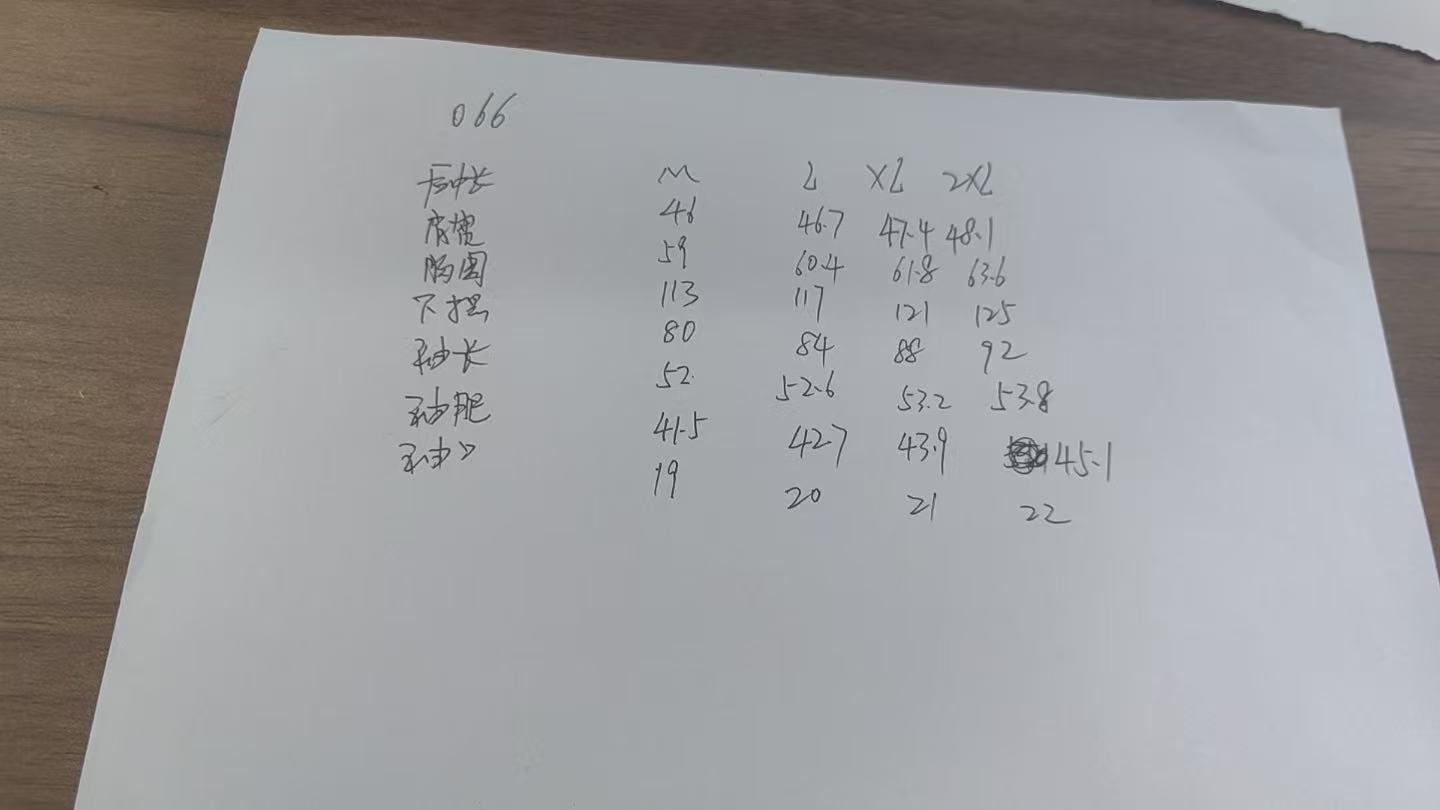 066
后中长 M L XL 2XL
肩宽 46 46.7 47.4 48.1
胸围 59 60.4 61.8 63.6
下摆 113 117 121 125
袖长 80 84 88 92
袖肥 52 52.6 53.2 53.8
袖口 41.5 42.7 43.9 45.1
19 20 21 22